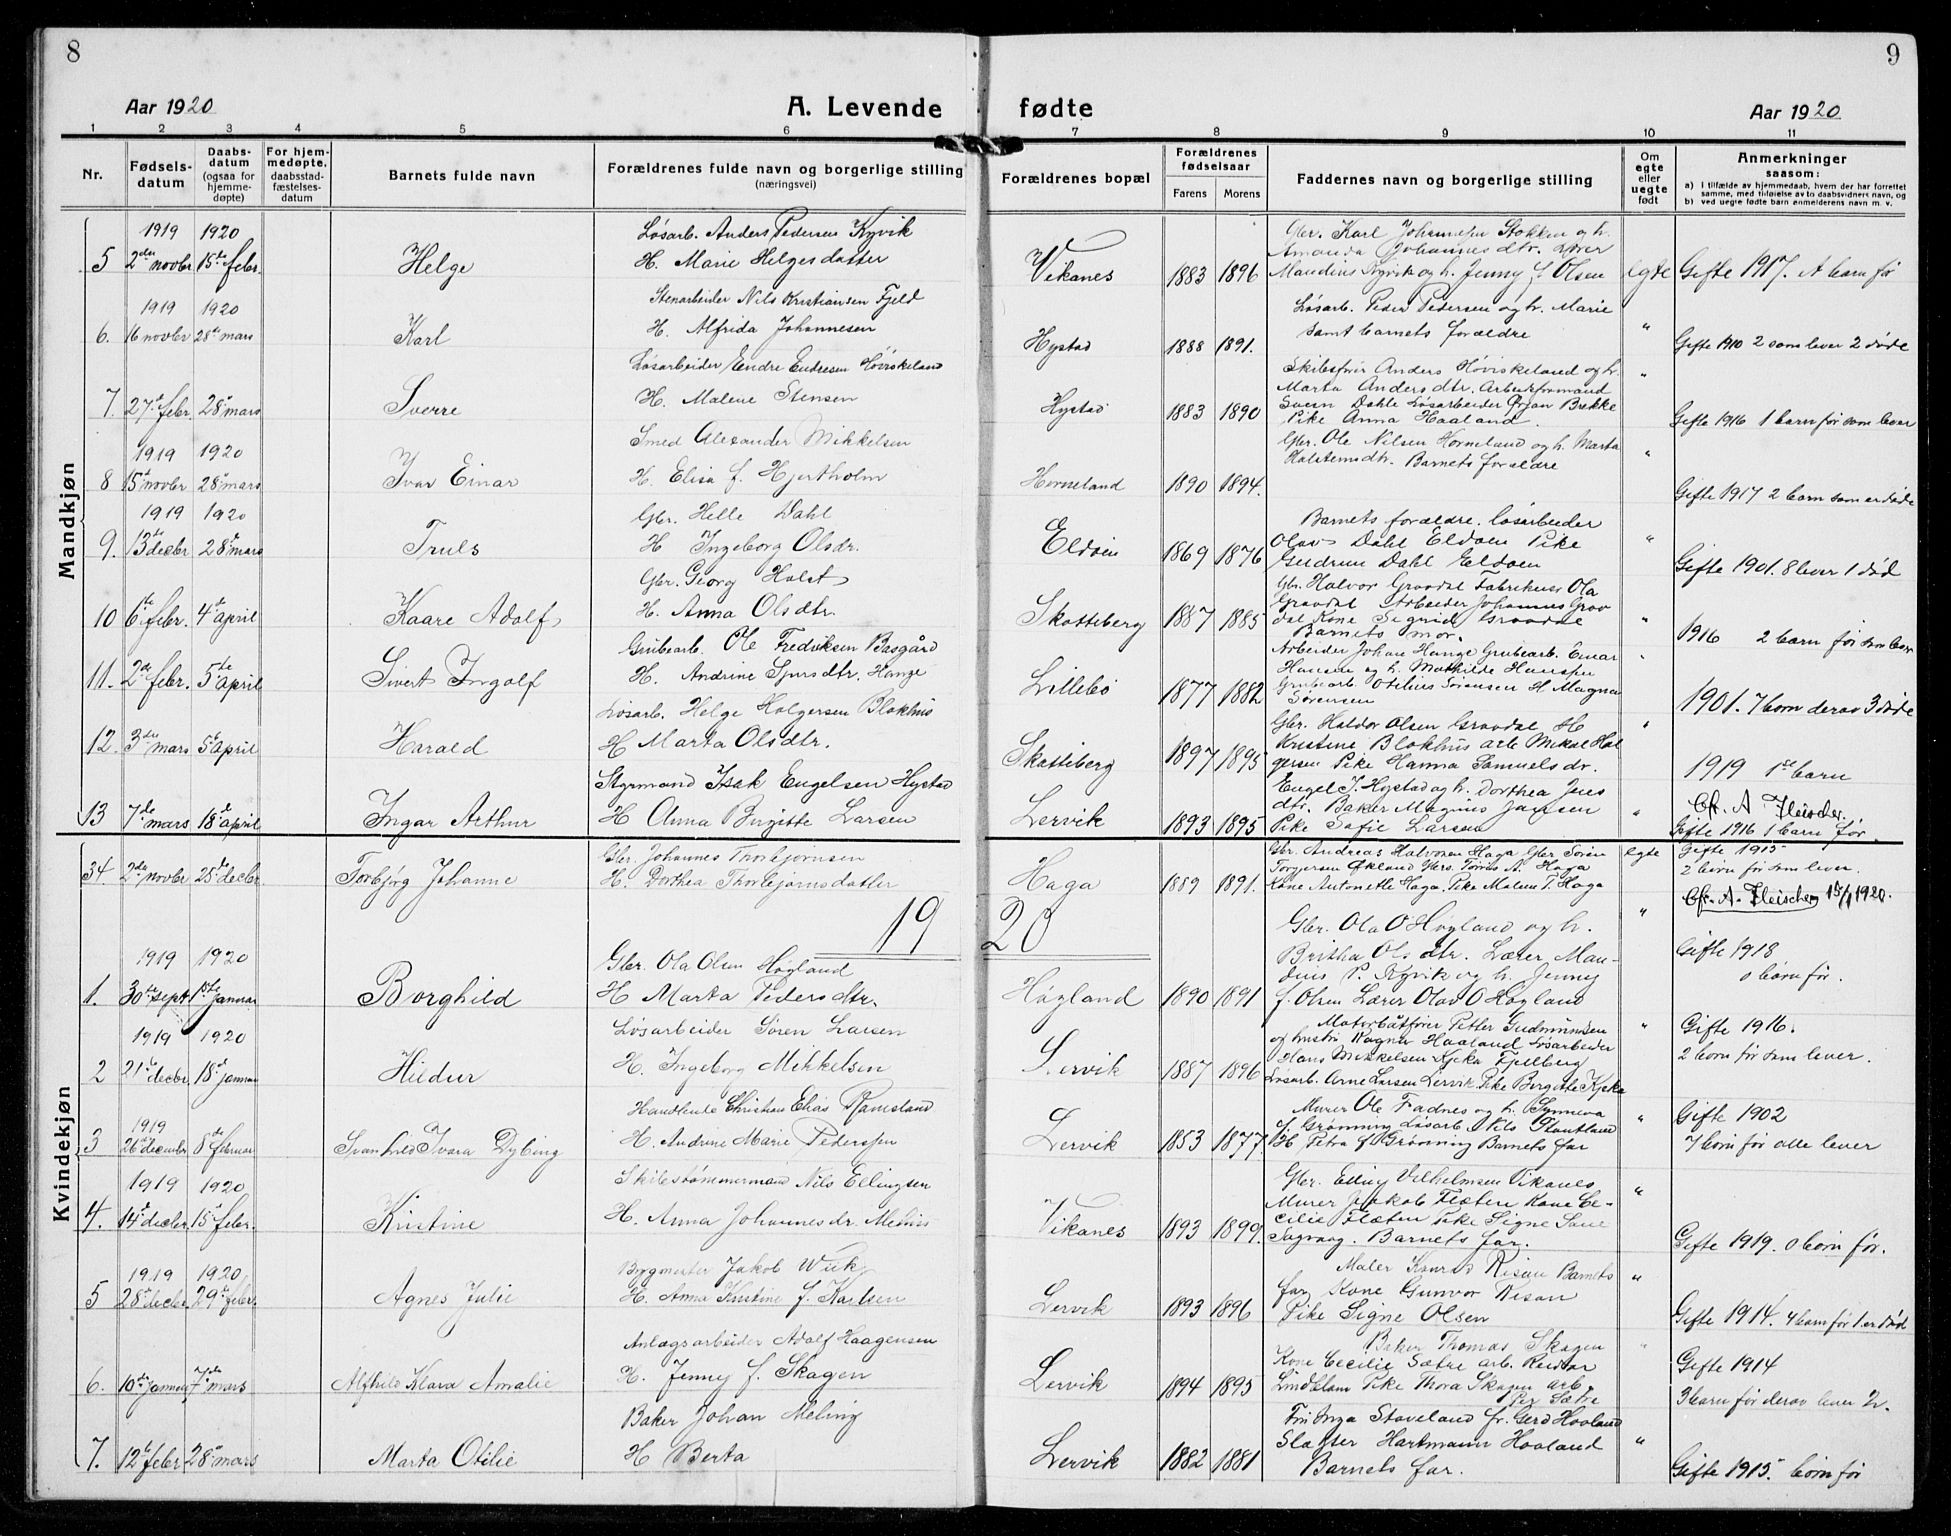 8
9
Aar 1920
A. Levende fødte
Aar 1920
1 2 3 4 5 6 7 8 9 10 11
Nr.
Fødselsdatum
Daabsdatum (ogsaa for hjemmedøpte)
For hjemmedøpte, daabsstadfæstelsesdatum
Barnets fulde navn
Forældrenes fulde navn og borgerlige stilling
(næringsvei)
Forældrenes bopæl
Forældrenes fødselsaar
Farens Morens
Faddernes navn og borgerlige stilling
Om egte eller uegte født
Anmerkninger saasom:
a) I tilfælde av hjemmedaab, hvem der har forrettet samme, med tilføielse av to daabsvidners navn, og
b) ved uegte fødte barn anmelderens navn m. v.
Mandkjøn
1919 1920 Løsarb. Anders Pedersen Kyvik Gbr. Karl Johannesen Stokken og h.
5 2den novbr 15de febr. Helge H. Marie Helgesdatter Vikanes 1883 1896 Amanda Johannesdtr. Lærer
Maudius Kyvik og h. Jenny f. Olsen egte Gifte 1917. 1 barn før
1919 1920 Stenarbeider Nils Kristiansen Fjeld Løsarb. Peder Pedersen og h. Marie
6. 16 novbr 28de mars Karl H. Alfrida Johannesen Hystad 1888 1891. samt barnets forældre " Gifte 1910 2 som lever 2 døde
Løsarbeider Endre Endresen Høviskeland Skibsfører Anders Høviskeland og h.
7. 27de febr. 28 mars Sverre H. Malene Stensen Hystad 1883 1890 Marta Andersdtr. Arbeidsformand
Svein Dahle Løsarbeider Ørjan Bække
Pike Anna Haaland. " Gifte 1916 1 barn før som lever
1919 1920 Smed Alexander Mikkelsen Gbr. Ole Nilsen Horneland og h. Marta
8 15de novbr 28 mars Ivar Einar H. Elisa f. Hjertholm Horneland 1890 1894. Halstensdtr. Barnets forældre " Gifte 1917 2 barn som er døde
1919 1920 Gbr. Helle Dahl Barnets forældre. løsarbeider
9. 13de decbr 28de mars Truls H Ingeborg Olsdr. Eldøen 1869 1876 Olav Dahl Eldøen Pike
Gudrun Dahl Eldøen " Gifte 1901. 8 lever 1 død
Gbr. Georg Holst Gbr. Halvor Gravdal Fabrikeier Ola
10 6te febr. 4de april Kaare Adolf H. Anna Olsdtr. Skotteberg 1887 1885 Gravdal Arbeider Johannes Grav
dal Kone Sigrid Gravdal
Barnets mor. " 1916 2 barn før som lever
Grubearb. Ole Fredriksen Basgård Arbeider Johan Hange Grubearb. Einar
11. 2de febr. 5te april Sivert Ingolf H. Andrine Sjursdtr. Hange Lillebø 1877 1882 Hansen og h. Mathilde Hansen
Grubearb Otilius Sørensen H Magna
Sørensen " 1901. 7 born derav 3 døde
Løsarb. Helge Holgersen Blokhus Gbr. Haldor Olsen Gravdal H
12. 3die mars 5te april Harald H Marta Olsdtr. Skotteberg 1897 1895 Kristine Blokhus arb Mikal Hol
gersen Pike Hanna Samuelsdr. " 1919 1ste barn
Styrmand Isak Engelsen Hystad Engel J. Hystad og h. Dorthea Jens
13 7de mars 18de april Ingar Arthur H Anna Birgitte Larsen Lervik 1893 1895 dtr. Baker Magnus Jansen
Pike Sofie Larsen " Cfr. A Fleischer.
Gifte 1916 1 barn før.
Kvindekjøn
34. 2den novbr 25de decbr Torbjørg Johanne Gbr. Johannes Thorbjørnsen
H. Dorthea Thorbjørnsdatter Haga 1889 1891. Gbr. Andreas Halvorsen Haga Gbr Søren
Torgersen Økland Gbr. Tørris A. Haga
Kone Antonette Haga. Pike Malene T. Haga egte Gifte 1915
2 barn før som lever.
Cfr. A. Fleischer 15/1 1920.
1920
1919 1920 Gbr. Ola Olsen Høgland Gbr. Ola O Høgland og h.
1. 30te sept 1ste januar Borghild H Marta Pedersdtr. Høgland 1890 1891 Britha Olsdtr. Lærer Mau-
dius P. Kyvik og h. Jenny
f. Olsen Lærer Olav O Høgland " Gifte 1918
0 børn før.
1919 1920 Løsarbeider Søren Larsen Motorbåtfører Petter Gudmundsen
2 21de decbr 18de januar Hildur H. Ingeborg Mikkelsen Lervik 1887 1896 og hustru Ragna Haaland Løsarbeider
Hans Mikkelsen Kjeka Fjelberg
Løsarb. Arne Larsen Lervik. Pike Borgitte Kjeka " Gifte 1916.
2 born før som lever.
1919 Handlende Christian Elias Ramsland Murer Ole Fadnes og h. Synneva
3 26de december 8de februar Svanhild Ivara Dybing H. Andrine Marie Pedersen Lervik 1853 1877 f. Grønning Løsarb. Nils Stautland
H Petra f Grønning Barnets far " Gifte 1902
7 born før alle lever
1919 1920 Skibstømmermand Nils Ellingsen Gbr. Elling Vilhelmsen Vikanes
4. 14de decbr. 15de febr. Kristine H. Anna Johannesdr. Mehus Vikanes 1893 1899 Murer Jakob Flæten Kone Ce-
cilie Flæten Pike Signe Sane
Sagvaag. Barnets far. " Gifte 1919. 0 born før.
1919 1920 Bygmester Jakob Wiik Maler Konrad Risan Barnets
5 28de decbr 29de febr. Agnes Julie H. Anna Kristine f. Karlsen Lervik 1893 1896 far Kone Gunvor Risan
Pike Signe Olsen " Gifte 1914. 4 barn før 1 er død
Anlægsarbeider Adolf Haagensen Baker Thomas Skagen
6. 10de januar 7de mars Alfhild Klara Amalie H. Jenny f. Skagen Lervik 1894 1895 Kone Cecilie Sætre arb. Reidar
Lindblam Pike Thora Skagen arb.
Per Sætre " Gifte 1914
3 barn før derav lever 2.
Baker Johan Meling Frk Inga Staveland fr. Gerd Haaland
7. 12te febr 28de mars Marta Otilie H Berta Lervik 1882 1881 Slagter Hartmann Haaland
Barnets far. " Gifte 1915. børn før